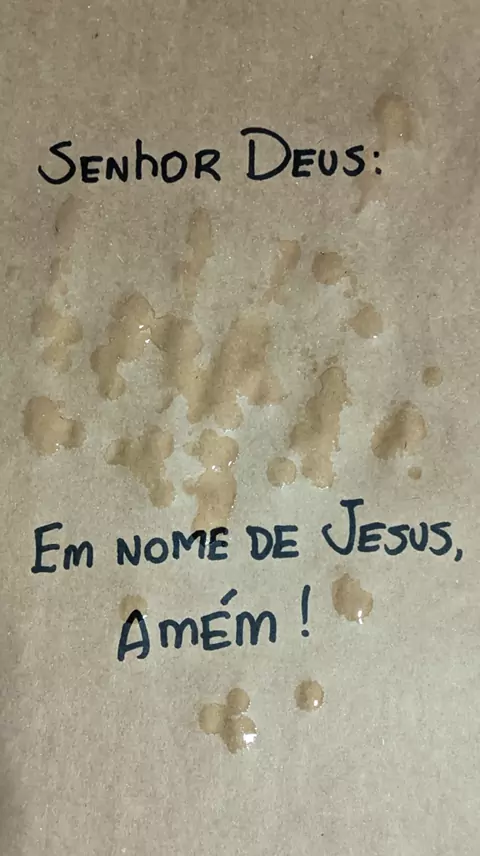 SENhOR DEUS:
Em NOME DE JESUS,
AmÉm !